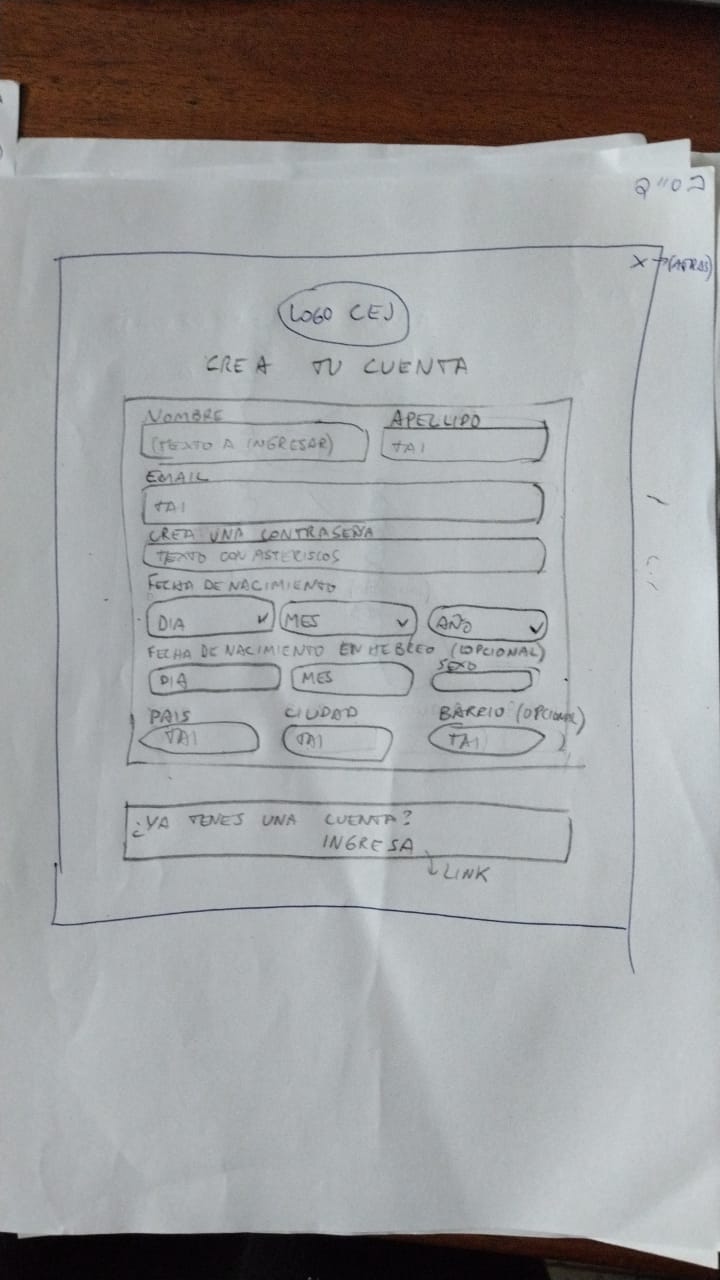 בס"ד
X → (ATRAS)
LOGO CEJ
CREA TU CUENTA
NOMBRE APELLIDO
(TEXTO A INGRESAR) TAI
EMAIL
TAI
CREA UNA CONTRASEÑA
TEXTO CON ASTERISCOS
FECHA DE NACIMIENTO
DIA MES AÑO
FECHA DE NACIMIENTO EN HEBREO (OPCIONAL)
SEXO
DIA MES
PAIS CIUDAD BARRIO (OPCIONAL)
TAI TAI TAI
¿YA TENES UNA CUENTA?
INGRESA
↳ LINK